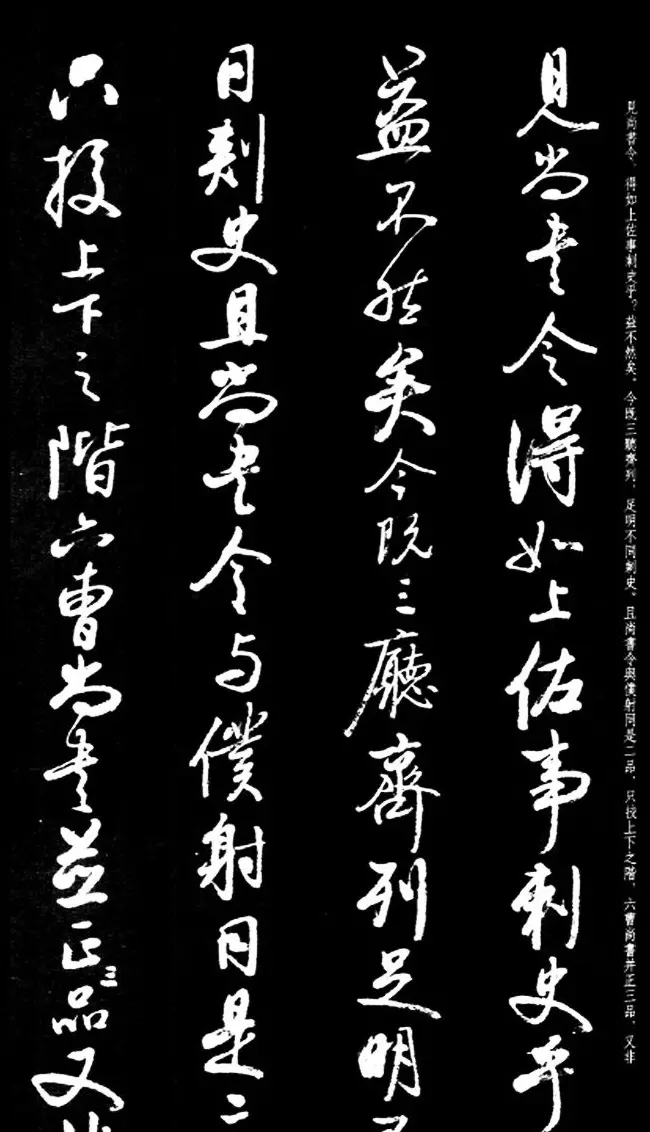 見尚書令、得如上佐事刺史乎?益不然矣。今既三聽齊列,足明不同刺史、且尚書令與僕射同是二品,只校上下之階,六曹尚書并正三品,又非
見尚書令得如上佐事刺史乎
益不然矣今既三廳齊列足明不
同刺史且尚書令与僕射同是二
只校上下之階六曹尚書並正三品又非